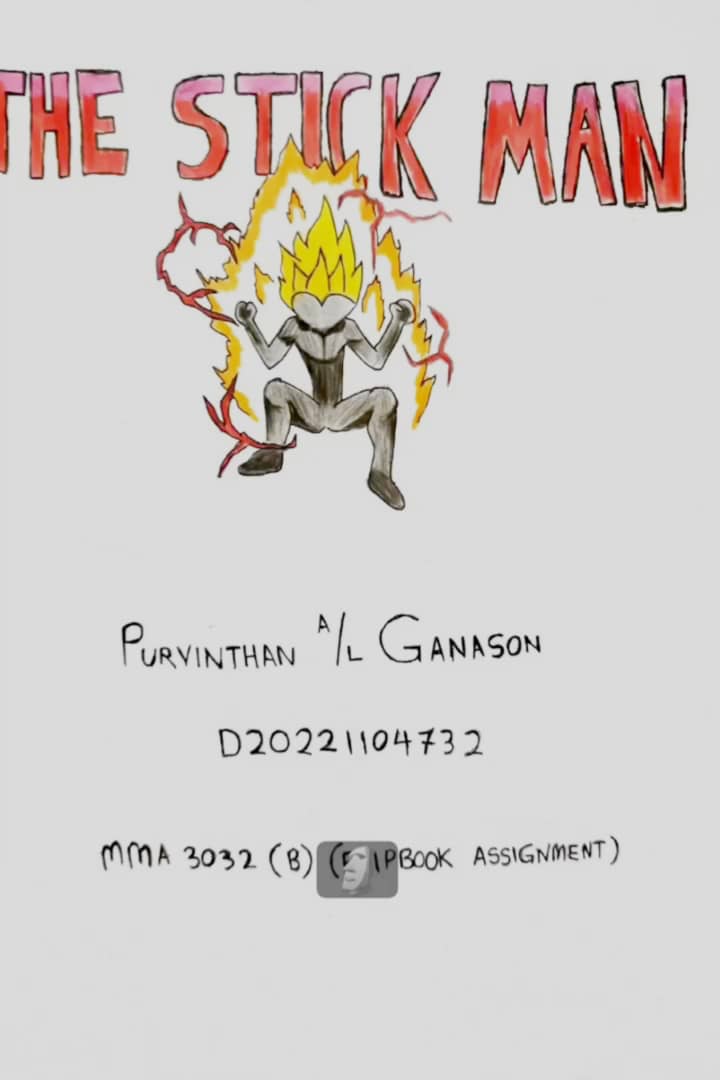 THE STICK MAN
PURVINTHAN A/L GANASON
D20221104732
MMA 3032 (B) (FLIPBOOK ASSIGNMENT)